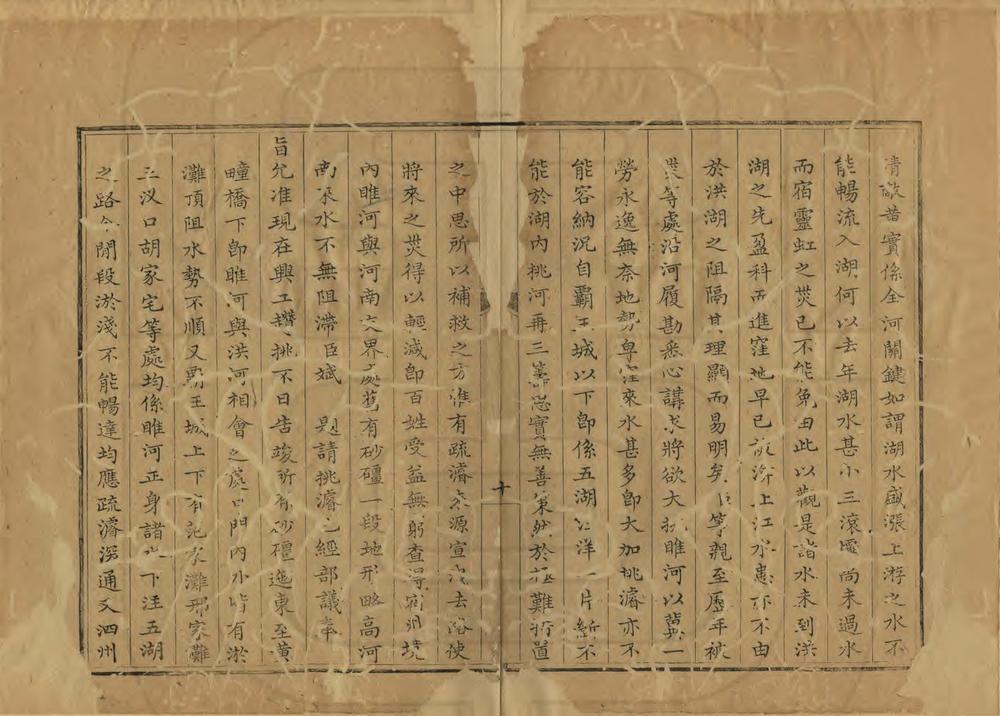 清 昔實係全河關鍵如謂湖水盛漲上游之水不
能暢流入湖何以去年湖水甚小三滾壩尚未過水
而宿靈虹之災已不能免由此以觀是諸水未到洪
湖之先盈科而進窪地早已 上江水患亦不由
於洪湖之阻隔其理顯而易明矣 等親至歷年被
災等處沿河履勘悉心講求將欲大 睢河以冀一
勞永逸無奈地勢卑窪來水甚多即大加挑濬亦不
能容納況自霸王城以下即係五湖 洋一片 不
能於湖內挑河再三籌思實無善策然於 難 置
之中思所以補救之方惟有疏濬 源宣 去路使
將來之災得以輕減即百姓受益無窮查得宿州境
內睢河與河南交界處舊有砂礓一段地形略高河
南來水不無阻滯臣斌 題請挑濬已經部議奉
旨允准現在興工趲挑不日告竣所有砂礓迤東至黃
疃橋下即睢河與洪河相會之處口門內外皆有淤
灘頂阻水勢不順又霸王城上下有 家灘邢家灘
三汊口胡家宅等處均係睢河正身諸水下注五湖
之路今間段淤淺不能暢達均應疏濬深通又泗州
十